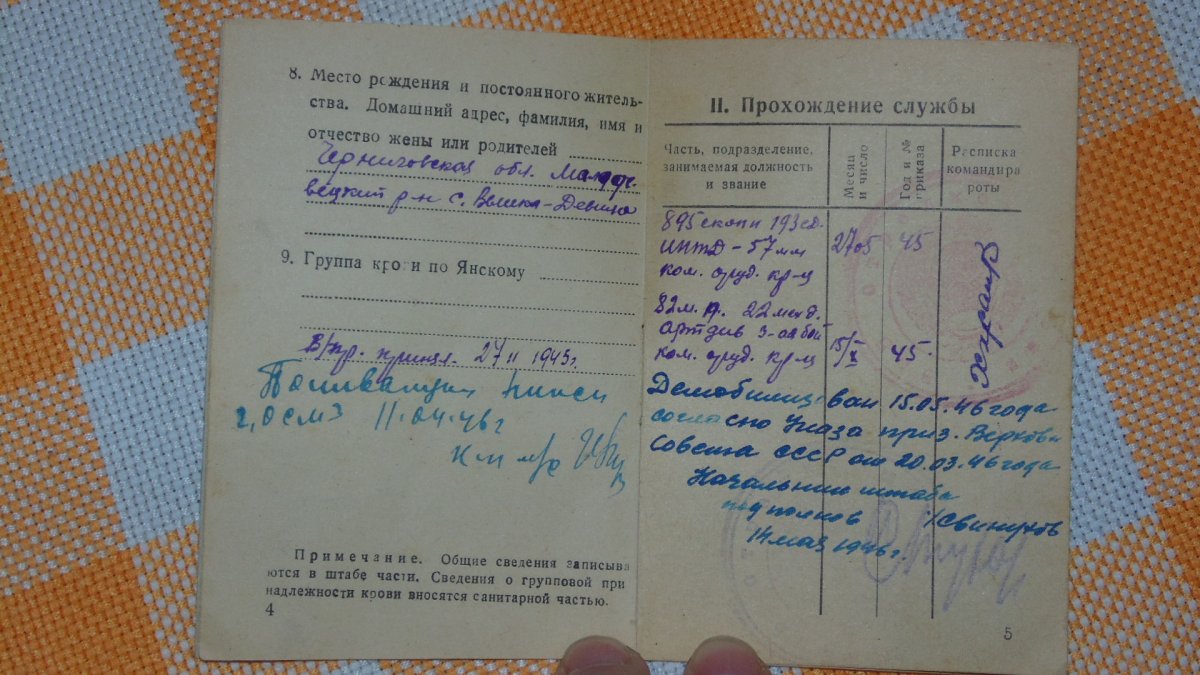 8. Место рождения и постоянного житель-
ства. Домашний адрес, фамилия, имя и
отчество жены или родителей
Черниговская обл. Мало-де-
вецкий р-н с. Велика-Девица
9. Группа крови по Янскому
В/пр. принял. 27 II 1945г
11.04.46г
Примечание. Общие сведения записыва
ются в штабе части. Сведения о групповой при
надлежности крови вносятся санитарной частью.
4
II. Прохождение службы
Часть, подразделение, занимаемая должность и звание
Месяц и число
Год и № приказа
Расписка командира роты
895 193 сд.
ИПТД - 57 мм 27 05 45
ком. оруд. кр-ц
82 м.п. 22 мех д.
артдив 3-ая бат 15/X 45
ком. оруд. кр-ц
Демобилизован 15.05.46 года
согласно Указа през. Верховн
Совета СССР от 20.03.46 года
Начальник штаба
подполков /Свинухов
14 мая 1946г.
5